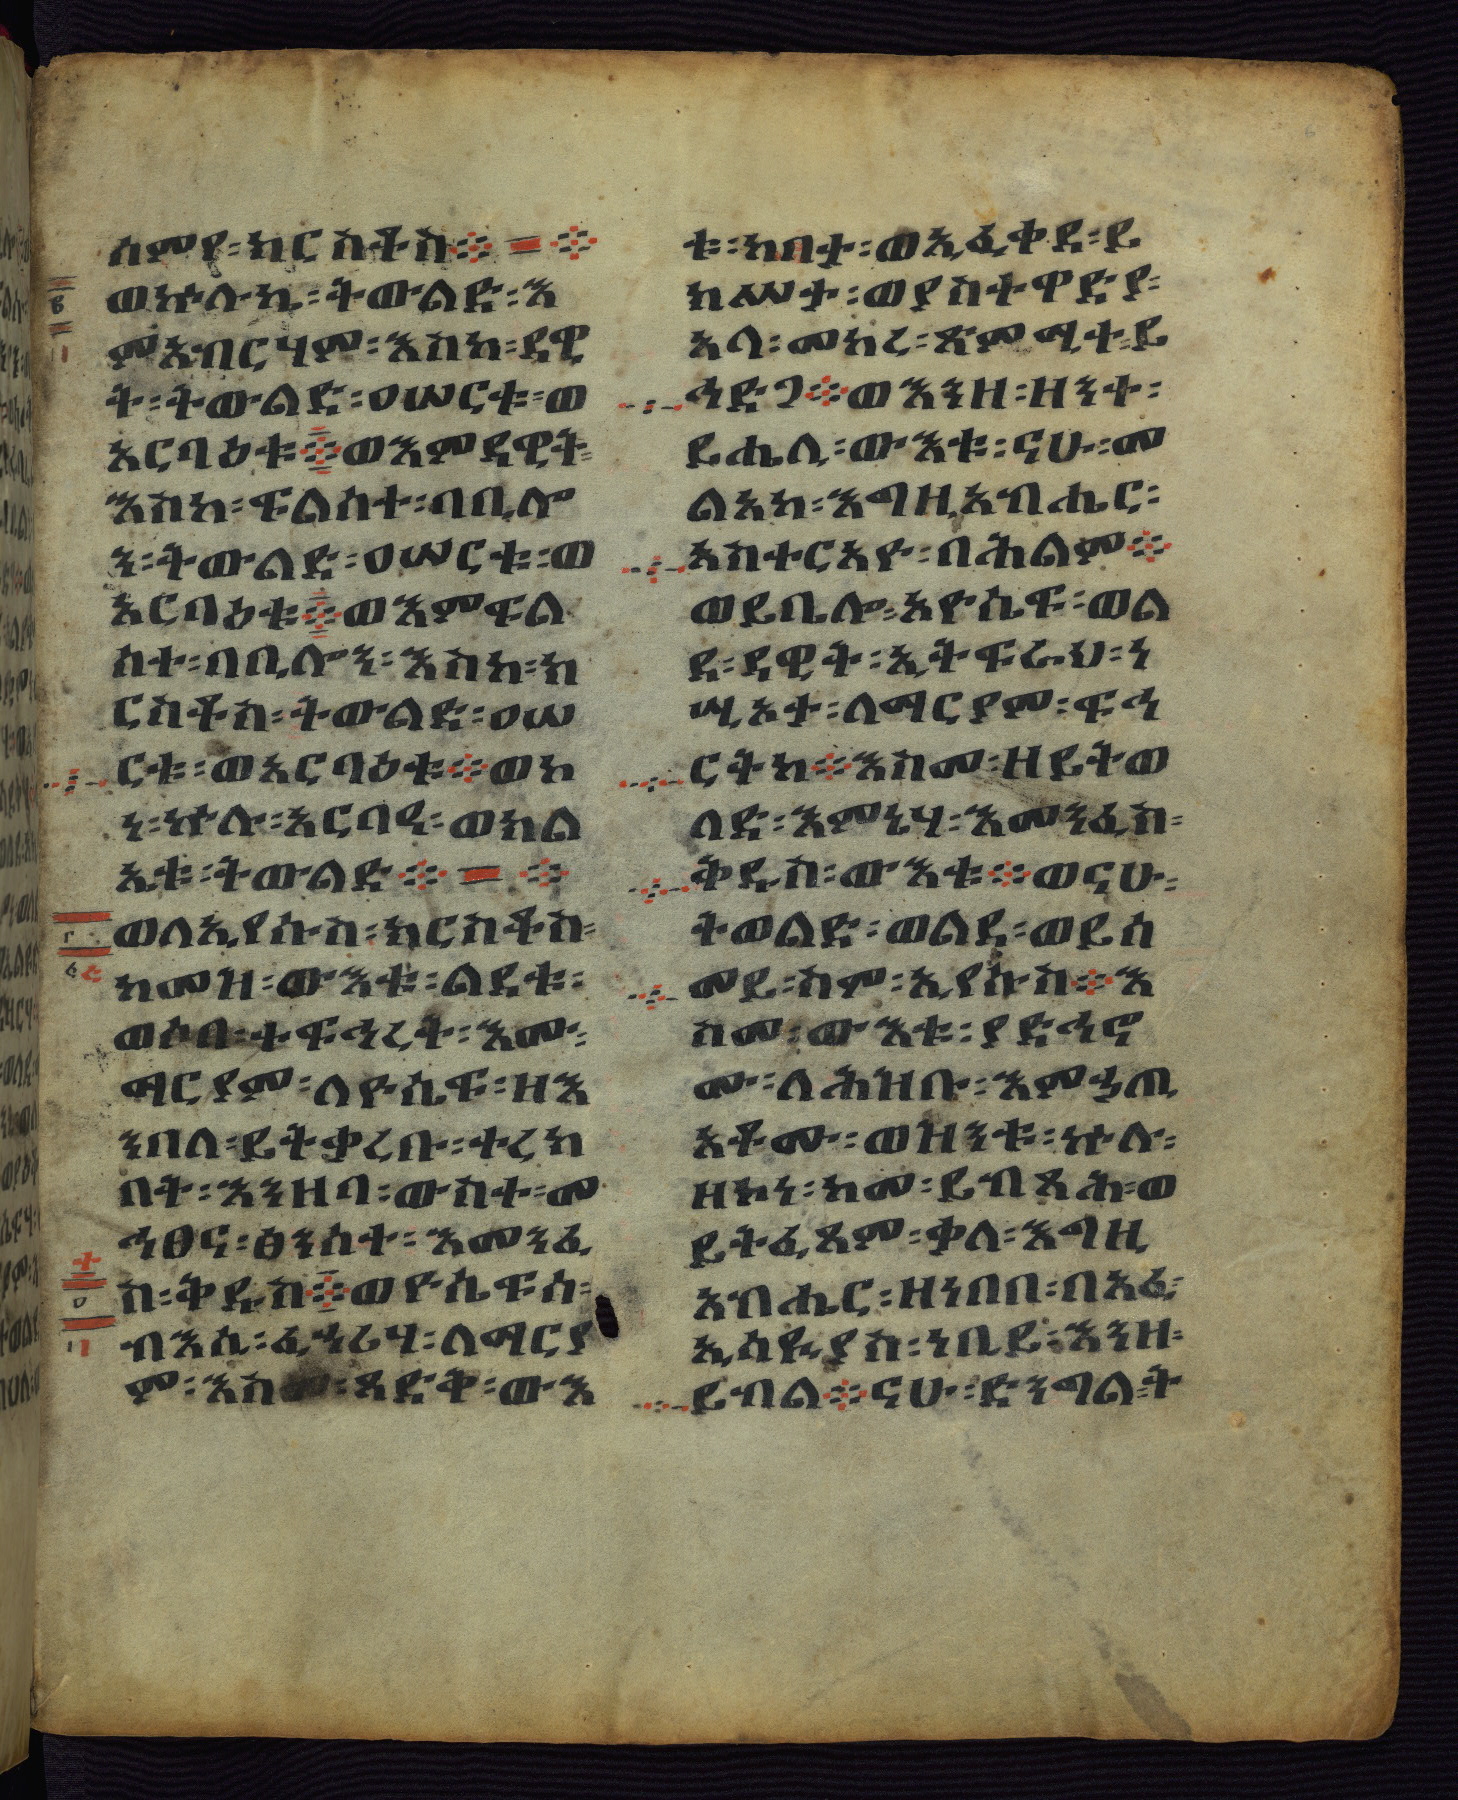 ስምየ፡ክርስቶስ፨ = ፨
ወኵሉኬ፡ትውልድ፡እ
ምአብርሃም፡እስከ፡ዳዊ
ት፡ትውልድ፡ዐሠርቱ፡ወ
አርባዕቱ፨ወእምዳዊት፡
እስከ፡ፍልሰተ፡ባቢሎ
ን፡ትውልድ፡ዐሠርቱ፡ወ
አርባዕቱ፨ወእምፍል
ሰተ፡ባቢሎን፡እስከ፡ክ
ርስቶስ፡ትውልድ፡ዐሠ
ርቱ፡ወአርባዕቱ፨ወኮ
ነ፡ኵሉ፡አርባዓ፡ወክል
ኤቱ፡ትውልድ፨ = ፨
ወለኢየሱስ፡ክርስቶስ፡
ከመዝ፡ውእቱ፡ልደቱ፡
ወሶበ፡ተፍኅረት፡እሙ፡
ማርያም፡ለዮሴፍ፡ዘእ
ንበለ፡ይትቃረቡ፡ተረክ
በት፡እንዘባ፡ውስተ፡መ
ኅፀና፡ፅንሰተ፡እመንፈ
ስ፡ቅዱስ፨ወዮሴፍሰ፡
ብእሲ፡ፈኃሪሃ፡ለማርያ
ም፡እስመ፡ጻድቅ፡ውእ
ቱ፡ከበተ፡ወኢፈቀደ፡ይ
ክሥታ፡ወያስተዋድያ፡
አላ፡መከረ፡ጽምሚተ፡ይ
ኅድጋ፨ወእንዘ፡ዘንተ፡
ይሔሊ፡ውእቱ፡ናሁ፡መ
ልአከ፡እግዚአብሔር፡
አስተርአዮ፡በሕልም፨
ወይቤሎ፡አዮሴፍ፡ወል
ደ፡ዳዊት፡ኢትፍራህ፡ነ
ሢአታ፡ለማርያም፡ፍኅ
ርትከ፨እስመ፡ዘይትወ
ለድ፡እምኔሃ፡እመንፈስ፡
ቅዱስ፡ውእቱ፨ወናሁ፡
ትወልድ፡ወልደ፡ወይሰ
መይ፡ስሞ፡ኢየሱስ፨እ
ስመ፡ውእቱ፡ያድኅኖ
ሙ፡ለሕዝቡ፡እምኃጢ
አቶሙ፡ወዝንቱ፡ኵሉ፡
ዘኮነ፡ከመ፡ይብጻሕ፡ወ
ይትፈጸም፡ቃለ፡እግዚ
አብሔር፡ዘነበበ፡በአፈ፡
ኢሳይያስ፡ነቢይ፡እንዘ፡
ይብል፨ናሁ፡ድንግል፡ት